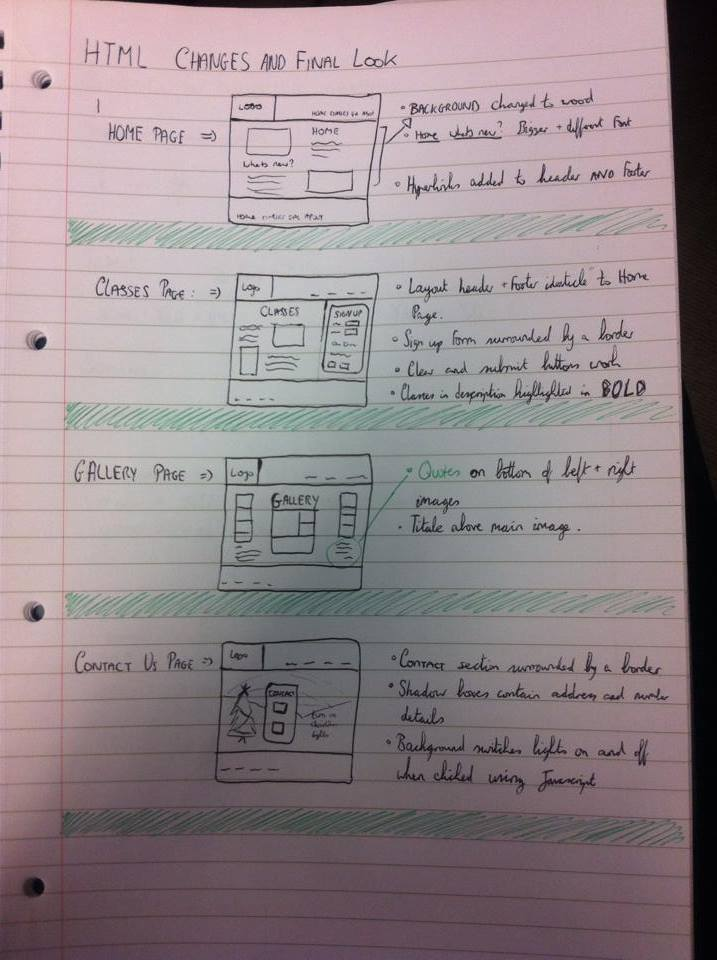 HTML CHANGES AND FINAL LOOK
1
HOME PAGE =>
LOGO
HOME
Whats new?
• BACKGROUND changed to wood
• Home whats new? Bigger + different Font
• Hyperlinks added to header AND Footer
CLASSES PAGE : =>
Logo
CLASSES
SIGN UP
• Layout header + Footer identicle to Home
Page.
• Sign up Form surrounded by a border
• Clear and submit buttons work
• Classes in description highlighted in BOLD
GALLERY PAGE =>
Logo
GALLERY
• Quotes on bottom of left + right
images
• Titale above main image.
CONTACT US PAGE =>
LOGO
CONTACT
turn on
lights
• Contact section surrounded by a border
• Shadow boxes contain address and number
details
• Background switches lights on and off
when clicked using Javascript